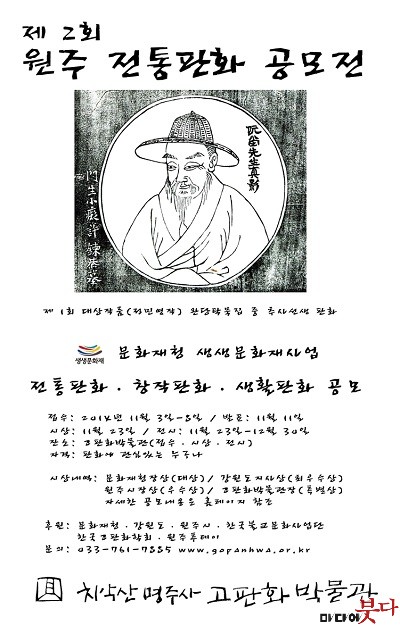 제 2회
원주 전통판화 공모전
阮堂先生真影
門生小癡許鍊恭摹
제 1회 대상작품(정민영작) 완당탁묵집 중 추사선생 판화
생생문화재
문화재청 생생문화재사업
전통판화 · 창작판화 · 생활판화 공모
접수: 2014년 11월 3일-8일 / 발표: 11월 11일
시상: 11월 23일 / 전시: 11월 23일-12월 30일
장소: 고판화박물관(접수 · 시상 · 전시)
자격: 판화에 관심있는 누구나
시상내역: 문화재청장상(대상) / 강원도지사상(최우수상)
원주시장상(우수상) / 고판화박물관장(특별상)
자세한 공모내용은 홈페이지 참조
후원: 문화재청 · 강원도 · 원주시 · 한국불교문화사업단
한국고판화학회 · 원주투데이
문의: 033-761-7885 www.gopanhwa.or.kr
치악산 명주사 고판화박물관
마다에 붓다